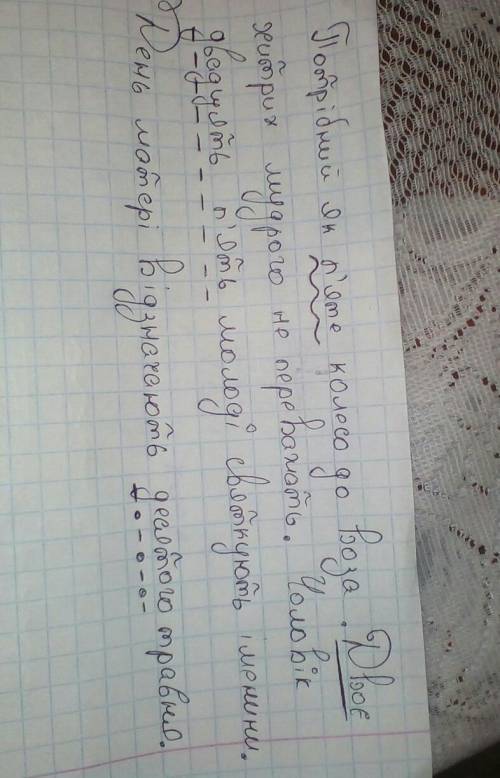 Потрібний як п'яте колесо до воза. Двоє
хитрих мудрого не переважать. Чоловік
двадцять п'ять молоді святкують іменини.
День матері відзначають десятого травня.